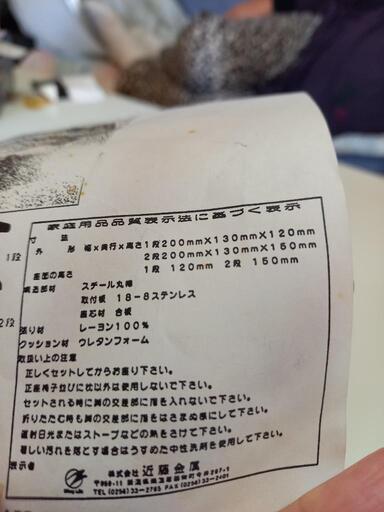 家庭用品品質表示法に基づく表示
寸法
外形 幅×奥行×高さ 1段200mm×130mm×120mm
2段200mm×130mm×150mm
座面の高さ 1段 120mm 2段 150mm
構造部材 スチール丸棒
取付板 18-8ステンレス
座石材 合板
張り材 レーヨン100%
クッション材 ウレタンフォーム
取扱い上の注意
正しくセットしてからお座り下さい。
正座椅子並びに枕以外は使用しないで下さい。
セットされる時に脚の交差部に指を入れないで下さい。
折りたたむ時も脚の交差部に指をはさまぬ様にして下さい。
直射日光またはストーブなどの熱をさけて下さい。
著しい汚れを落とす場合はうすめた中性洗剤を使用して下さい。
表示者
株式会社 近藤金属
TEL (0256)33-2765 FAX(0256)33-2401
1段
2段